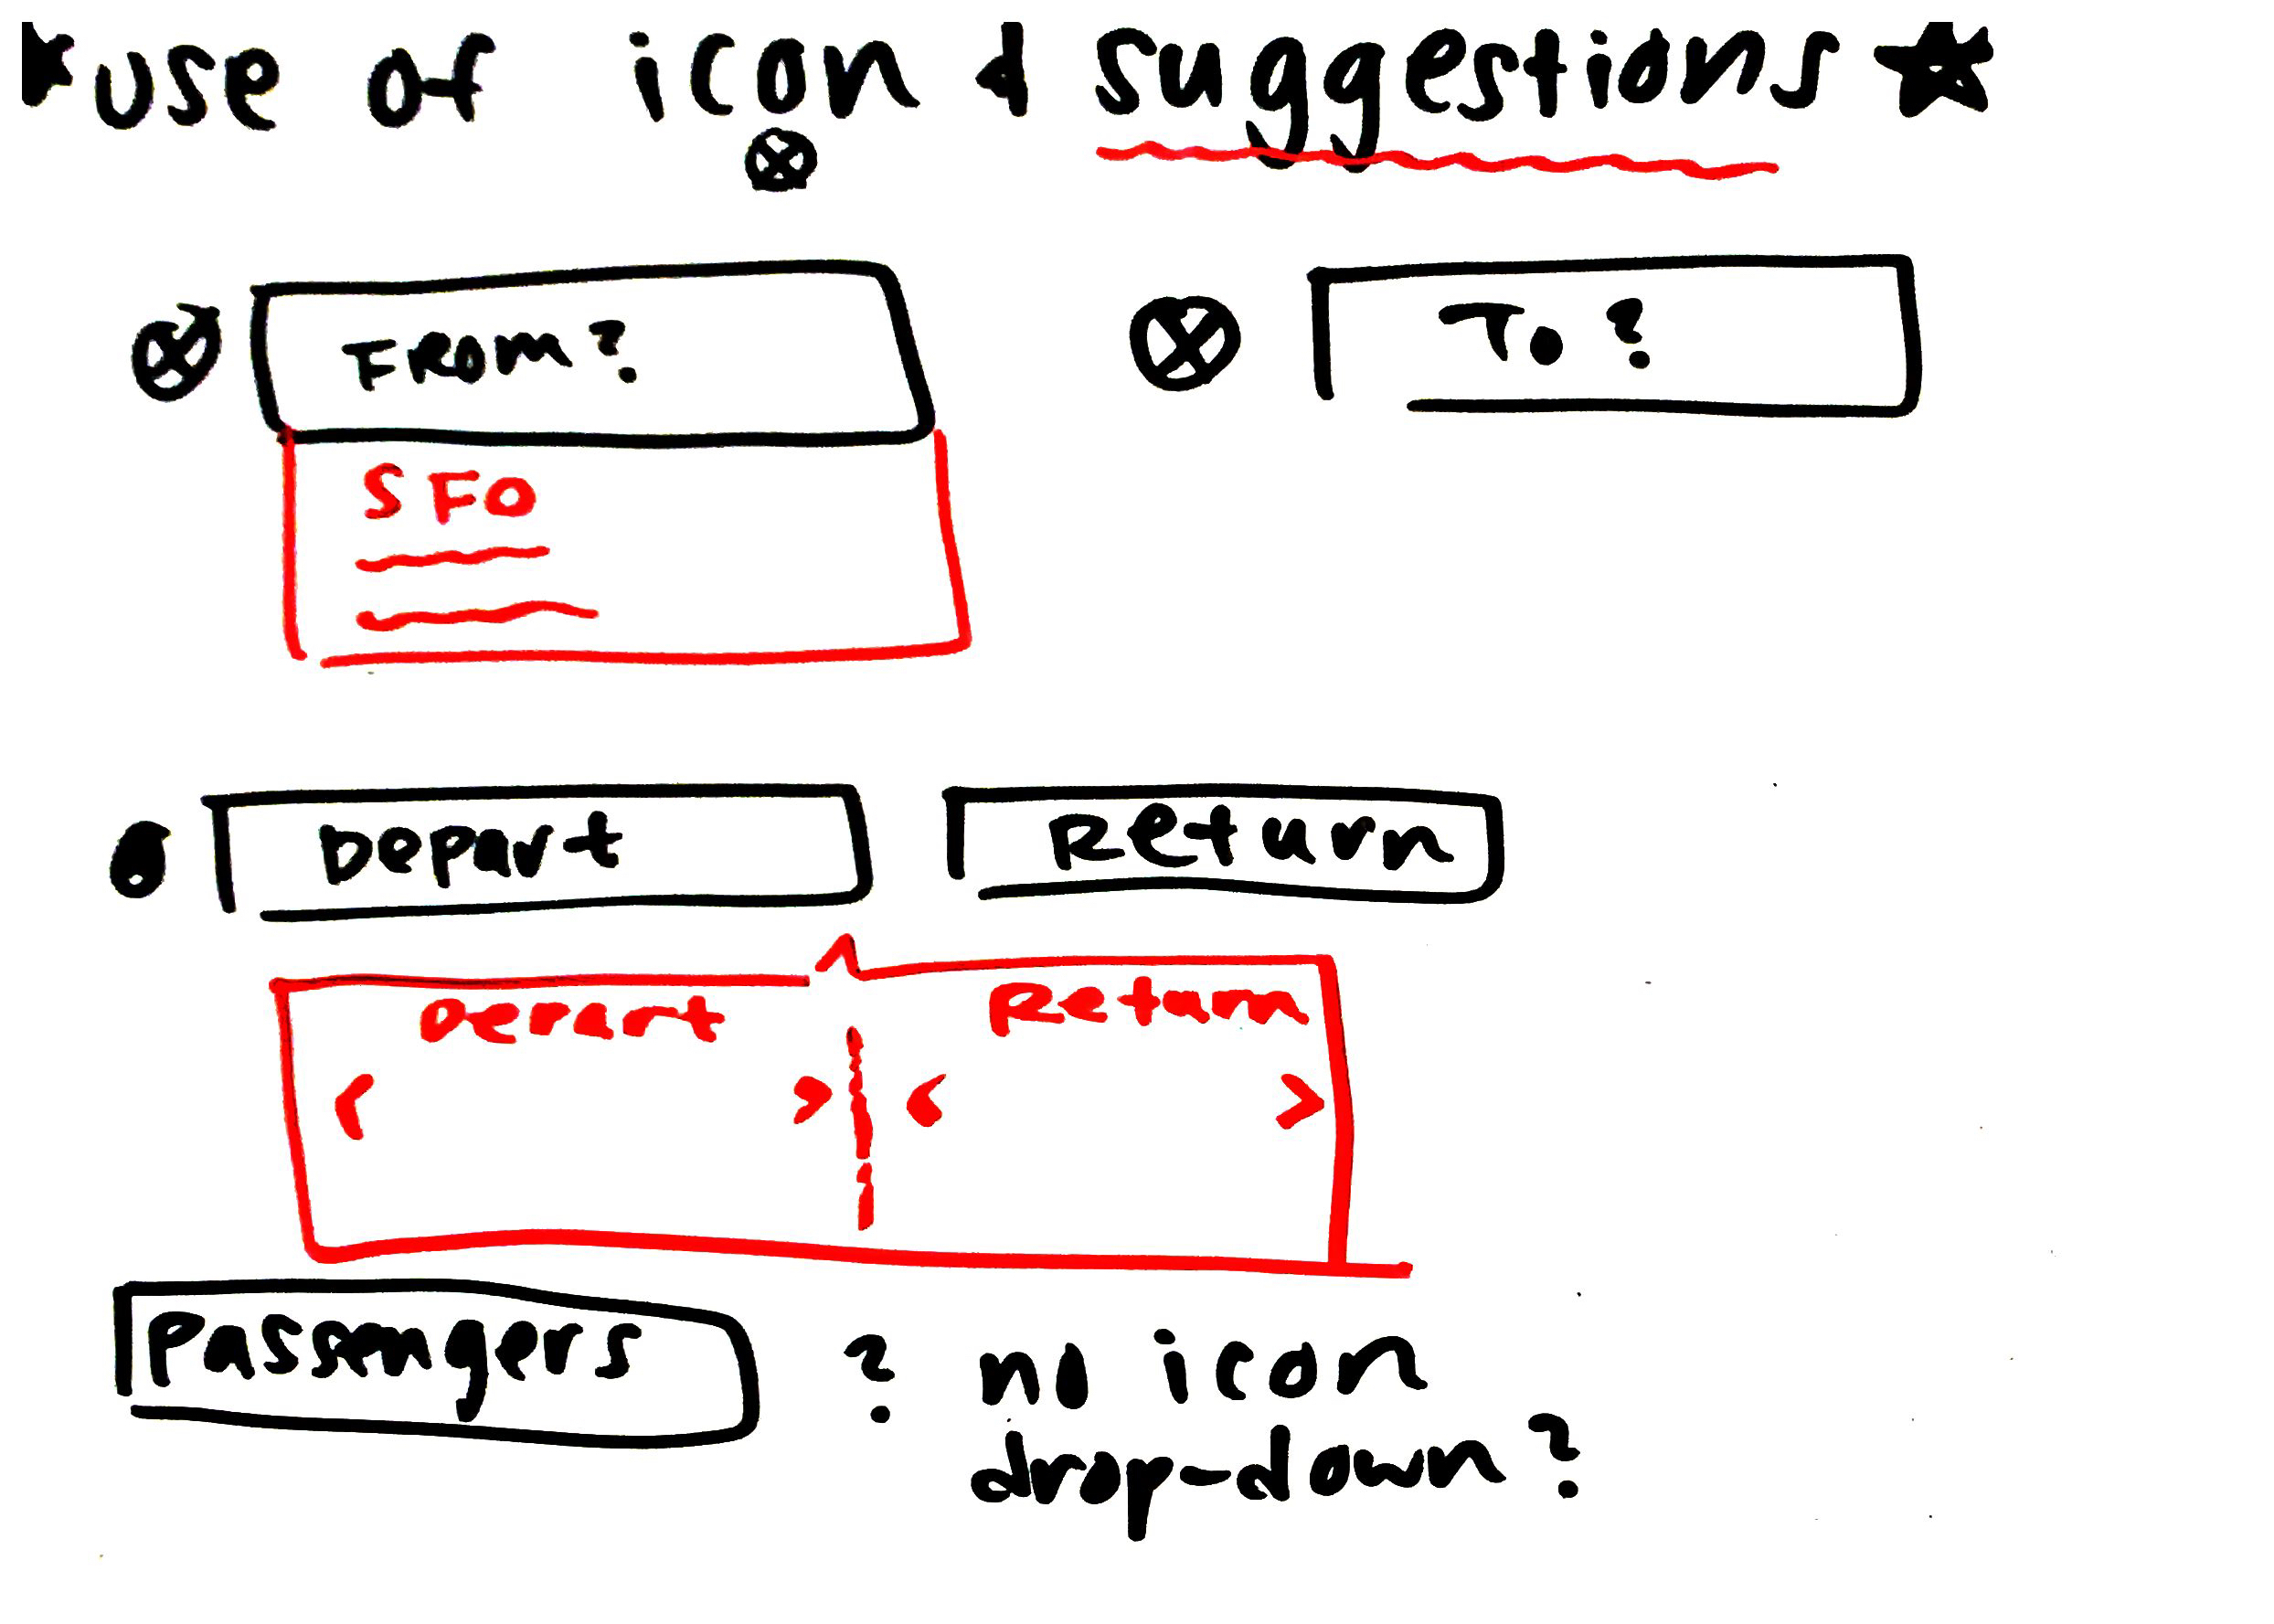 use of icon & suggestions
FROM?
To?
SFO
Depart
Return
Depart
Return
Passengers
? no icon
drop-down?